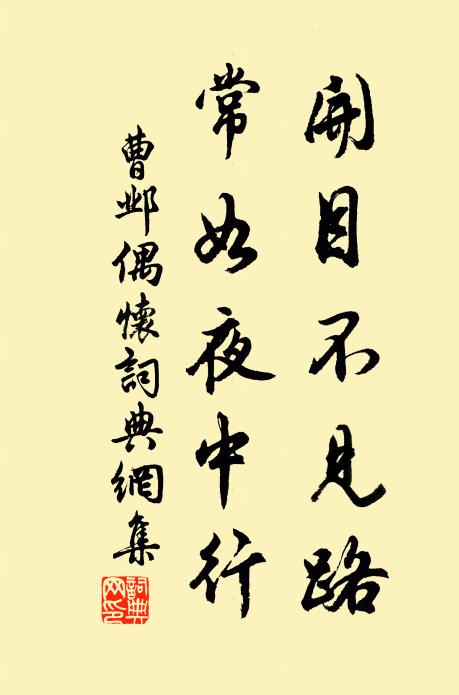 開目不見路
常如夜中行
曹鄴偶懷詞典網集
詞典
网印